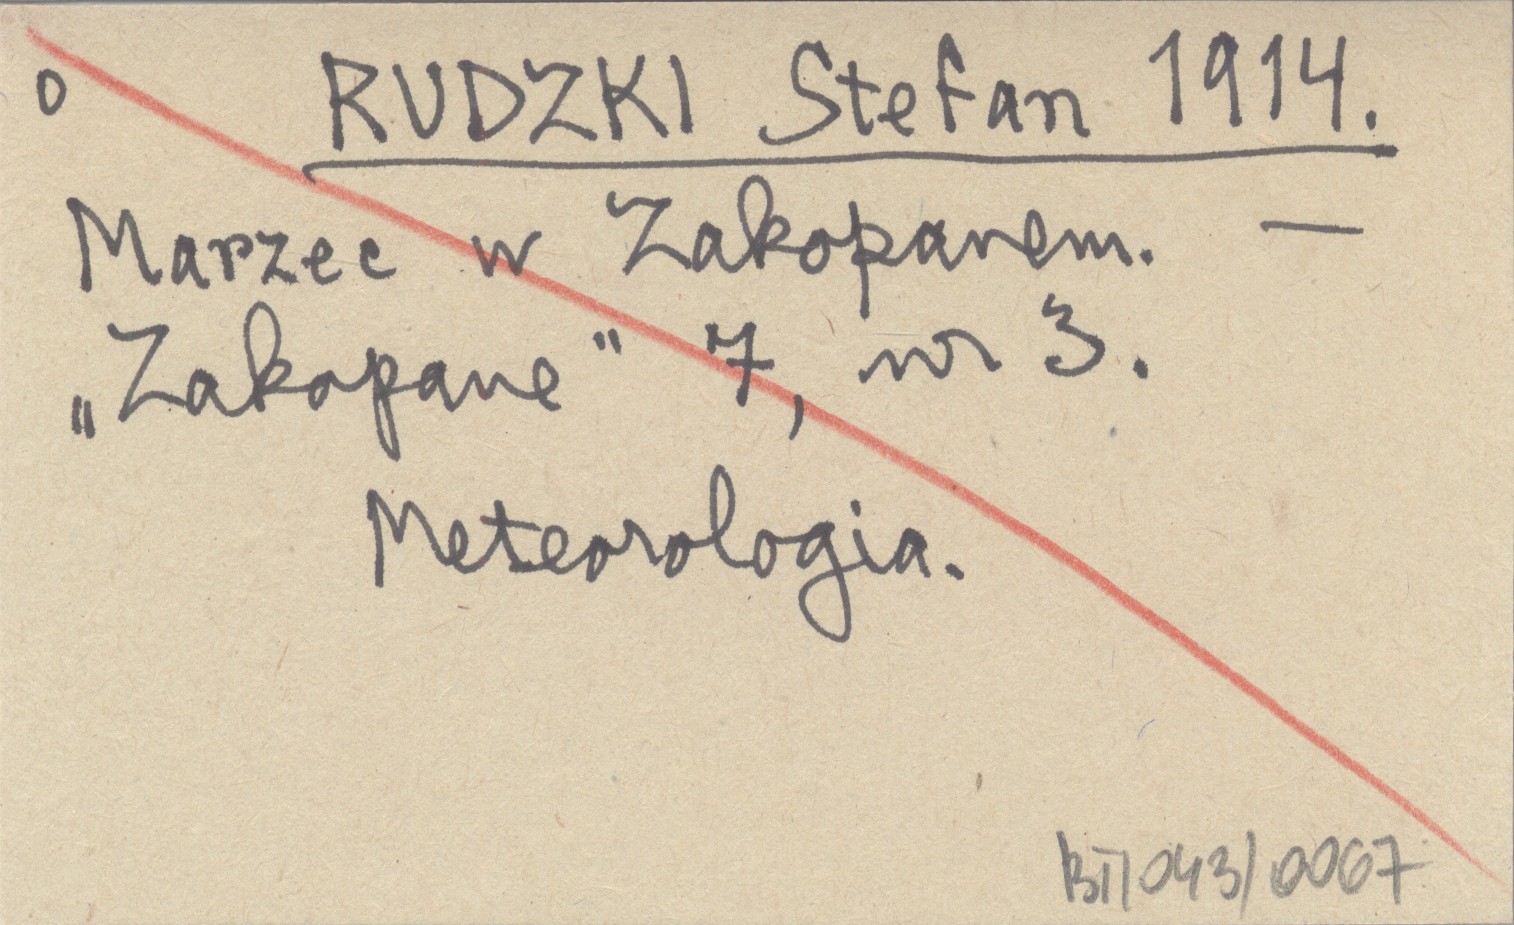 o RUDZKI Stefan 1914.
Marzec w Zakopanem. —
„Zakopane" 7, nr 3.
Meteorologia.
BT/043/0067